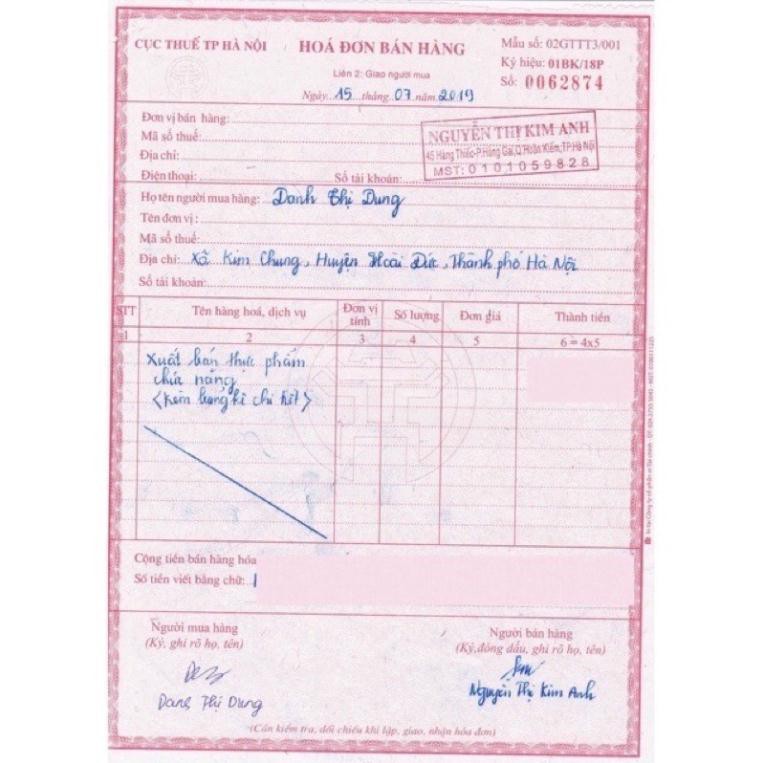 CỤC THUẾ TP HÀ NỘI
HOÁ ĐƠN BÁN HÀNG
Liên 2: Giao người mua
Ngày 15 tháng 07 năm 2019
Mẫu số: 02GTTT3/001
Ký hiệu: 01BK/18P
Số: 0062874
Đơn vị bán hàng:
Mã số thuế:
Địa chỉ:
Điện thoại: Số tài khoản:
NGUYỄN THỊ KIM ANH
45 Hàng Thiếc-P.Hàng Gai,Q.Hoàn Kiếm,TP.Hà Nội
MST: 0101059828
Họ tên người mua hàng: Danh Thị Dung
Tên đơn vị:
Mã số thuế:
Địa chỉ: Xã Kim Chung, Huyện Hoài Đức, Thành phố Hà Nội
Số tài khoản:
STT Tên hàng hoá, dịch vụ Đơn vị tính Số lượng Đơn giá Thành tiền
1 2 3 4 5 6 = 4x5
Xuất bán thực phẩm
chức năng
<Kèm bảng kê chi tiết>
Cộng tiền bán hàng hóa
Số tiền viết bằng chữ:
Người mua hàng
(Ký, ghi rõ họ, tên)
Danh Thị Dung
Người bán hàng
(Ký,đóng dấu, ghi rõ họ, tên)
Nguyễn Thị Kim Anh
(Cần kiểm tra, đối chiếu khi lập, giao, nhận hóa đơn)